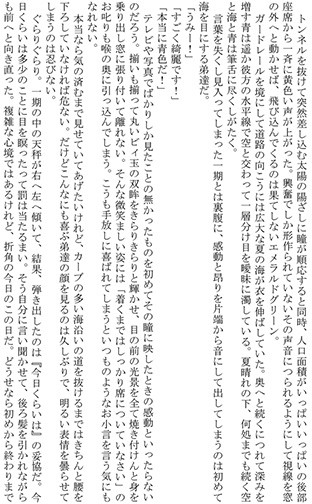 トンネルを抜けて突然差し込む太陽の陽ざしに瞳が順応すると同時、人口面積がいっぱいいっぱいの後部
座席から一斉に黄色い声が上がった。興奮でしか形作られていないその声音につられるようにして視線を窓
の外へと動かせば、飛び込んでくるのは果てしないエメラルドグリーン。
ガードレールを境にして道路の向こうには広大な夏の海が衣を伸ばしていた。奥へと続くにつれて深み
増す青は遥か彼方の水平線で空と交わって一層分け目を曖昧に濁している。夏晴れの下、何処までも続く空
と海と青は筆舌に尽くしがたく。
言葉を失くし見入ってしまった一期とは裏腹に、感動と昂りを片端から音にして出してしまうのは初めて
海を目にする弟達だ。
「うみー！」
「すごく綺麗です！」
「本当に青色だ！」
テレビや写真でばかりしか見たことの無かったものを初めてその瞳に映したときの感動といったらない
のだろう。揃いも揃って丸いビィ玉の双眸をきらりきらりと輝かせ、目の前の光景を全て焼き付けんと身を
乗り出し窓に張り付いて離れない。そんな微笑ましい姿には「着くまではしっかり席についていなさい」の
お叱りも喉の奥に引っ込んでしまう。こうも手放しに喜ばれてしまうといつものようなお小言を言う気にも
なれない。
本当なら気の済むまで見せていてあげたいけれど、カーブの多い海沿いの道を抜けるまではきちんと腰を
下ろしていなければ危ない。だけどこんなにも喜ぶ弟達の顔を見るのは久しぶりで、明るい表情を曇らせて
しまうのは忍びない。
ぐらりぐらり。一期の中の天秤が右へ左へ傾いて、結果、弾き出したのは『今日くらいは』の妥協だ。今
日くらいは多少のことに目を瞑ったって罰は当たるまい。そう自分に言い聞かせて、後ろ髪を引かれながら
も前へと向き直った。複雑な心境ではあるけれど、折角の今日のこの日だ。どうせなら初めから終わりまで